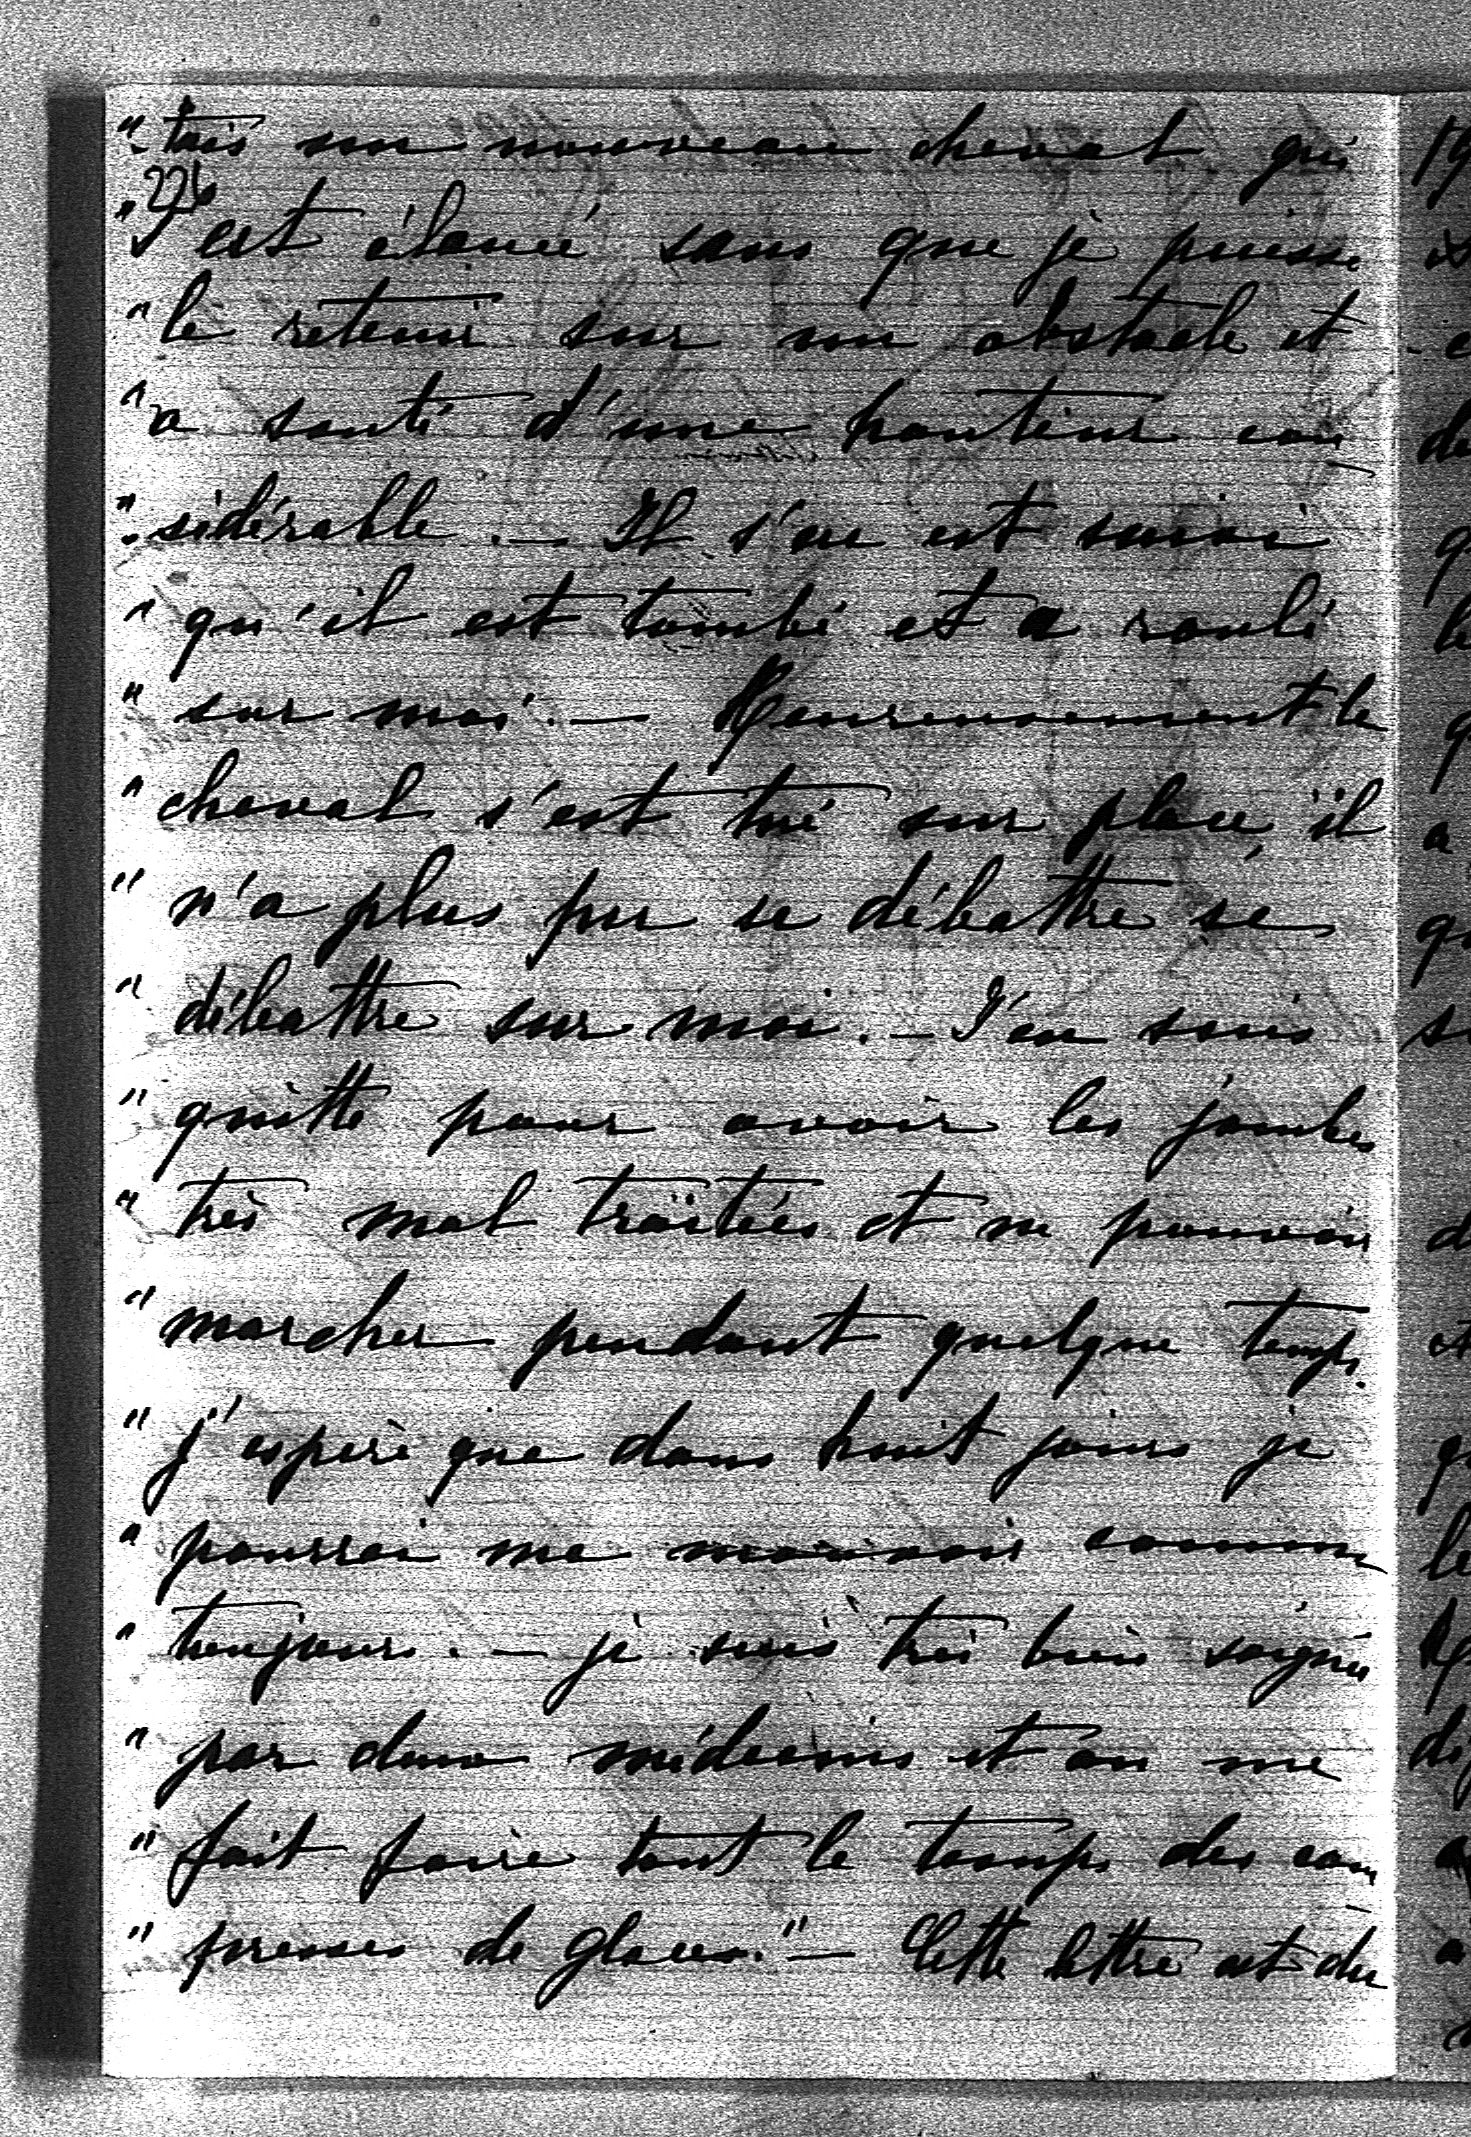 "-tais un nouveau cheval qui
226
"s'est élancé sans que je puisse
"le retenir sur un obstacle et
"a sauté d'une hauteur con
"-sidérable. — Il s'en est suivi
"qu'il est tombé et a roulé
"sur moi. — Heureusement le
"cheval s'est tué sur place il
"n'a plus pu se débattre se
"débattre sur moi. — J'en suis
"quitte pour avoir les jambes
"très mal traitées et ne pouvoir
"marcher pendant quelque temps.
"j'espère que dans huit jours je
"pourrai me mouvoir comme
"toujours. — je suis très bien soignée
"par deux médecins et on me
"fait faire tout le temps des com
"presses de glaces." — Cette lettre est du